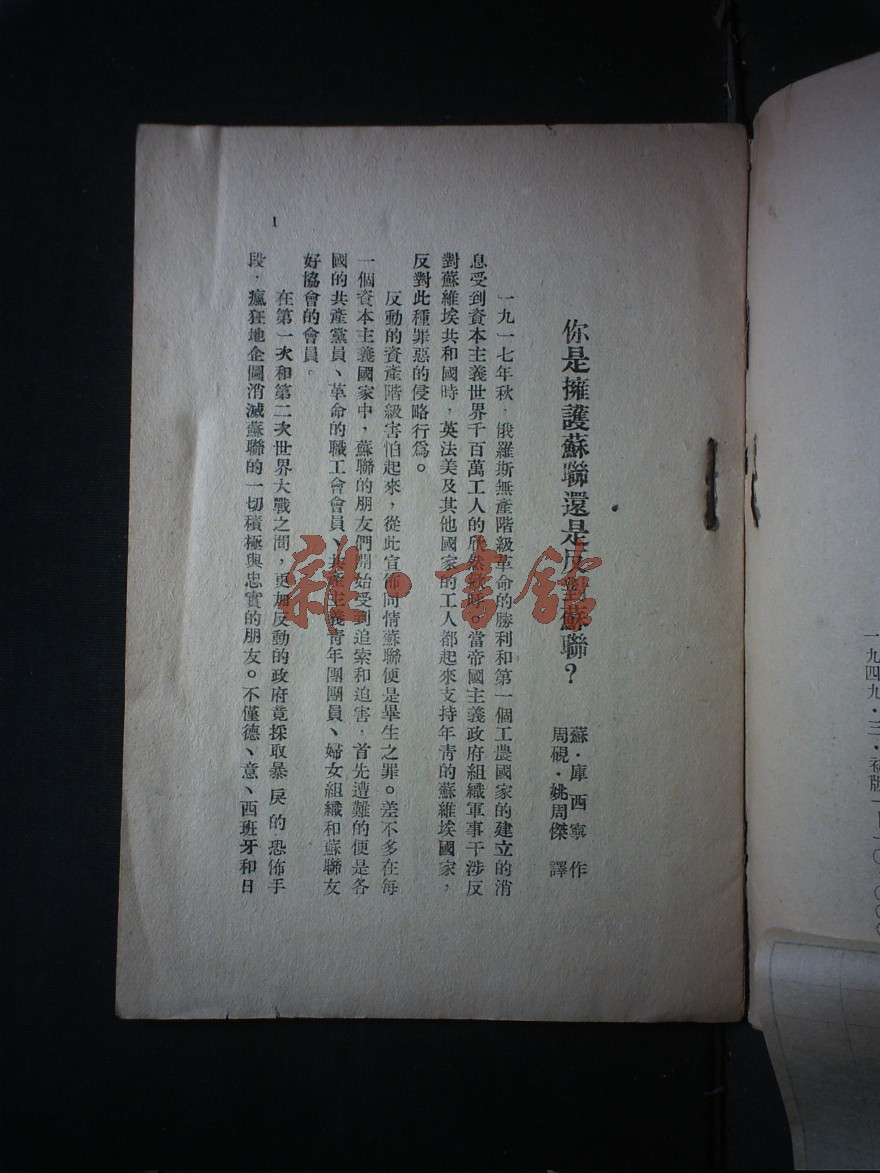 一九四九·三·初版一—一〇·〇〇〇
你是擁護蘇聯還是反對蘇聯？
蘇·庫西寧 作
周硯·姚周傑 譯
一九一七年秋，俄羅斯無產階級革命的勝利和第一個工農國家的建立的消
息受到資本主義世界千百萬工人的欣然歡呼。當帝國主義政府組織軍事干涉反
對蘇維埃共和國時，英法美及其他國家的工人都起來支持年青的蘇維埃國家，
反對此種罪惡的侵略行爲。
反動的資產階級害怕起來，從此宣佈同情蘇聯便是畢生之罪。差不多在每
一個資本主義國家中，蘇聯的朋友們開始受到追索和迫害，首先遭難的便是各
國的共產黨員、革命的職工會會員、共產主義靑年團團員、婦女組織和蘇聯友
好協會的會員。
在第一次和第二次世界大戰之間，更加反動的政府竟採取暴戾的恐佈手
段，瘋狂地企圖消滅蘇聯的一切積極與忠實的朋友。不僅德、意、西班牙和日
1
雜·書館